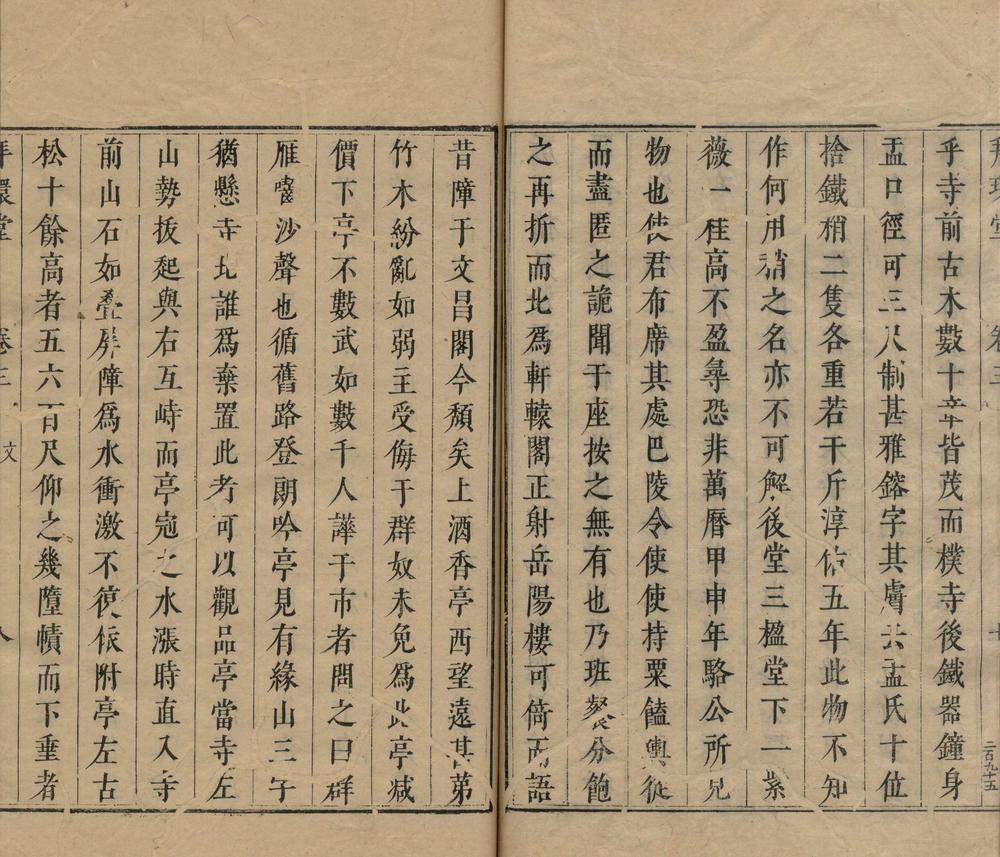 乎寺前古木數十章皆茂而樸寺後鐵器鐘身
盂口徑可三尺制甚雅鎔字其膚云盂氏十位
捨鐵稍二隻各重若干斤淳佑五年此物不知
作何用稍之名亦不可解後堂三楹堂下一紫
薇一種高不盈尋恐非萬曆甲申年駱公所見
物也使君布席其處巴陵令使使持粟饁輿從
而盡匿之詭聞于座按之無有也乃班餐分飽
之再折而北爲軒轅閣正射岳陽樓可倚而語
昔障于文昌閣今頹矣上酒香亭西望遠甚第
竹木紛亂如弱主受侮于群奴未免爲此亭減
價下亭不數武如數千人譁于市者問之曰群
雁嚎沙聲也循舊路登朗吟亭見有緣山三字
猶懸寺北誰爲棄置此考可以觀品亭當寺左
山勢拔起與右互峙而亭寇之水漲時直入寺
前山石如疊屏障爲水衝激不復依附亭左古
松十餘高者五六百尺仰之幾墮幘而下垂者
卷三 文 八